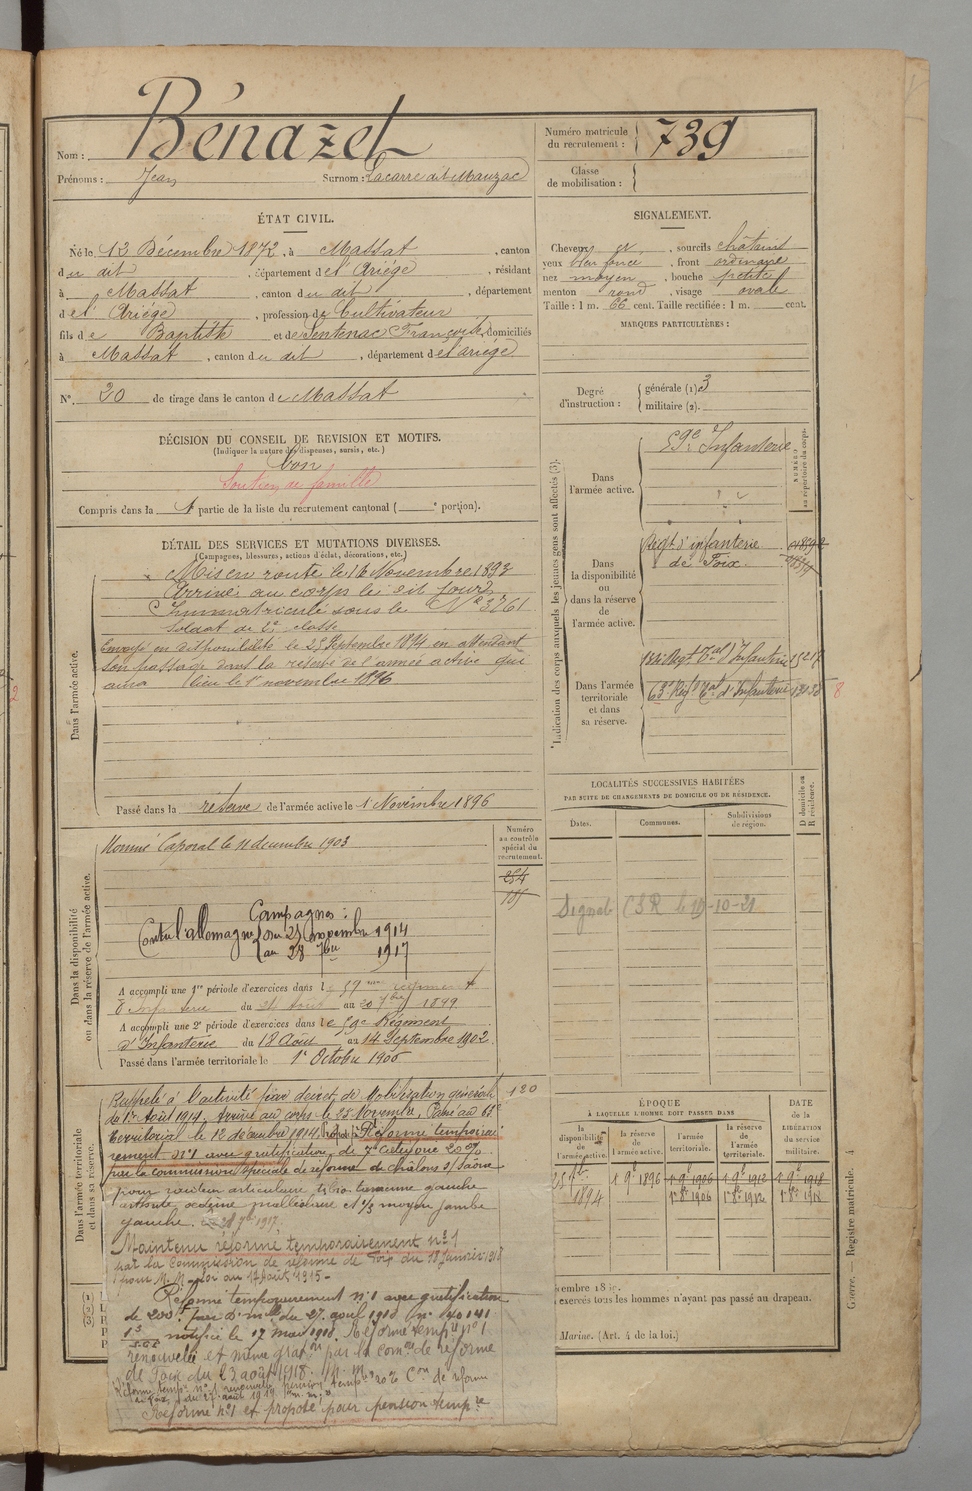 Nom : Bénazet
Prénoms : Jean Surnom : Lacarre dit Mauzac
ÉTAT CIVIL.
Né le 13 Décembre 1872, à Massat, canton
du dit, département de l'Ariège, résidant
à Massat, canton du dit, département
de l'Ariège, profession de Cultivateur
fils de Baptiste et de Sentenac Françoise, domiciliés
à Massat, canton du dit, département de l'Ariège
N°. 20 de tirage dans le canton de Massat
DÉCISION DU CONSEIL DE REVISION ET MOTIFS.
(Indiquer la nature des dispenses, sursis, etc.)
bon
Soutien de famille
Compris dans la 1 partie de la liste du recrutement cantonal ( e portion).
DÉTAIL DES SERVICES ET MUTATIONS DIVERSES.
(Campagnes, blessures, actions d'éclat, décorations, etc.)
Dans l'armée active.
Mis en route le 16 Novembre 1893
Arrivé au corps le dit jour
Immatriculé sous le N° 3761
Soldat de 2e classe
Envoyé en disponibilité le 25 Septembre 1894 en attendant
son passage dans la réserve de l'armée active qui
aura lieu le 1er novembre 1896
Passé dans la réserve de l'armée active le 1 Novembre 1896
Dans la disponibilité
ou dans la réserve de l'armée active.
Numéro
au contrôle
spécial du
recrutement.
254
Nommé Caporal le 11 décembre 1903
Campagnes :
Contre l'allemagne du 25 Novembre 1914
au 28 7bre 1917
A accompli une 1re période d'exercices dans le 59me régiment
d'Infanterie du 24 Août au 20 7bre 1899
A accompli une 2e période d'exercices dans le 59e Régiment
d'Infanterie du 18 Août au 14 Septembre 1902
Passé dans l'armée territoriale le 1er Octobre 1906
Dans l'armée territoriale
et dans sa réserve.
Rappelé à l'activité par décret de Mobilisation générale 120
du 1er Août 1914. Arrivé au corps le 25 Novembre. Passé au
territorial le 12 décembre 1914. Réformé temporai
rement n°1 avec gratification de 7e catégorie 20%
par la commission spéciale de réforme de châlons s/ Saône
pour raideur articulaire tibio tarsienne gauche
œdème malléolaire et 1/3 moyen jambe
gauche. 28 7bre 1917.
Maintenu réformé temporairement n°1
par la Commission de réforme de Foix du 18 Janvier 1918
Réformé temporairement n°1 avec gratification
de 200f
notifié le 17 mai 1918. Réformé tempre n°1
renouvelée et même grat on par la comon de réforme
de Foix du 23 août 1918.
Réformé n°1 et proposé pour pension tempre
Numéro matricule
du recrutement : 739
Classe
de mobilisation :
SIGNALEMENT.
Cheveux et, sourcils châtains
yeux bleu foncé, front ordinaire
nez moyen, bouche petite
menton rond, visage ovale
Taille : 1 m. 66 cent. Taille rectifiée : 1 m. cent.
MARQUES PARTICULIÈRES :
Degré
d'instruction :
générale (1) 3
militaire (2).
Indication des corps auxquels les jeunes gens sont affectés (3).
NUMÉRO
au répertoire du corps.
Dans
l'armée active.
59e Infanterie
Dans
la disponibilité
ou
dans la réserve
de
l'armée active.
Régt d'infanterie
de Foix
Dans l'armée
territoriale
et dans
sa réserve.
Régt Tal d'Infanterie
Régt Tal d'Infanterie
8
LOCALITÉS SUCCESSIVES HABITÉES
PAR SUITE DE CHANGEMENTS DE DOMICILE OU DE RÉSIDENCE.
Dates.
Communes.
Subdivisions
de région.
D domicile ou
R résidence.
Signalé CSR le 19-10-21
ÉPOQUE
À LAQUELLE L'HOMME DOIT PASSER DANS
DATE
de la
LIBÉRATION
du service
militaire.
la
disponibilité
de
l'armée active.
la réserve
de
l'armée active.
l'armée
territoriale.
la réserve
de l'armée
territoriale.
25 7bre 1894
1 9e 1896
1 9e 1906
1er 8e 1906
1 9e 1912
1er 8e 1912
1 9e 1918
1er 8e 1918
exercés tous les hommes n'ayant pas passé au drapeau.
Marine. (Art. 4 de la loi.)
Guerre. — Registre matricule. 4